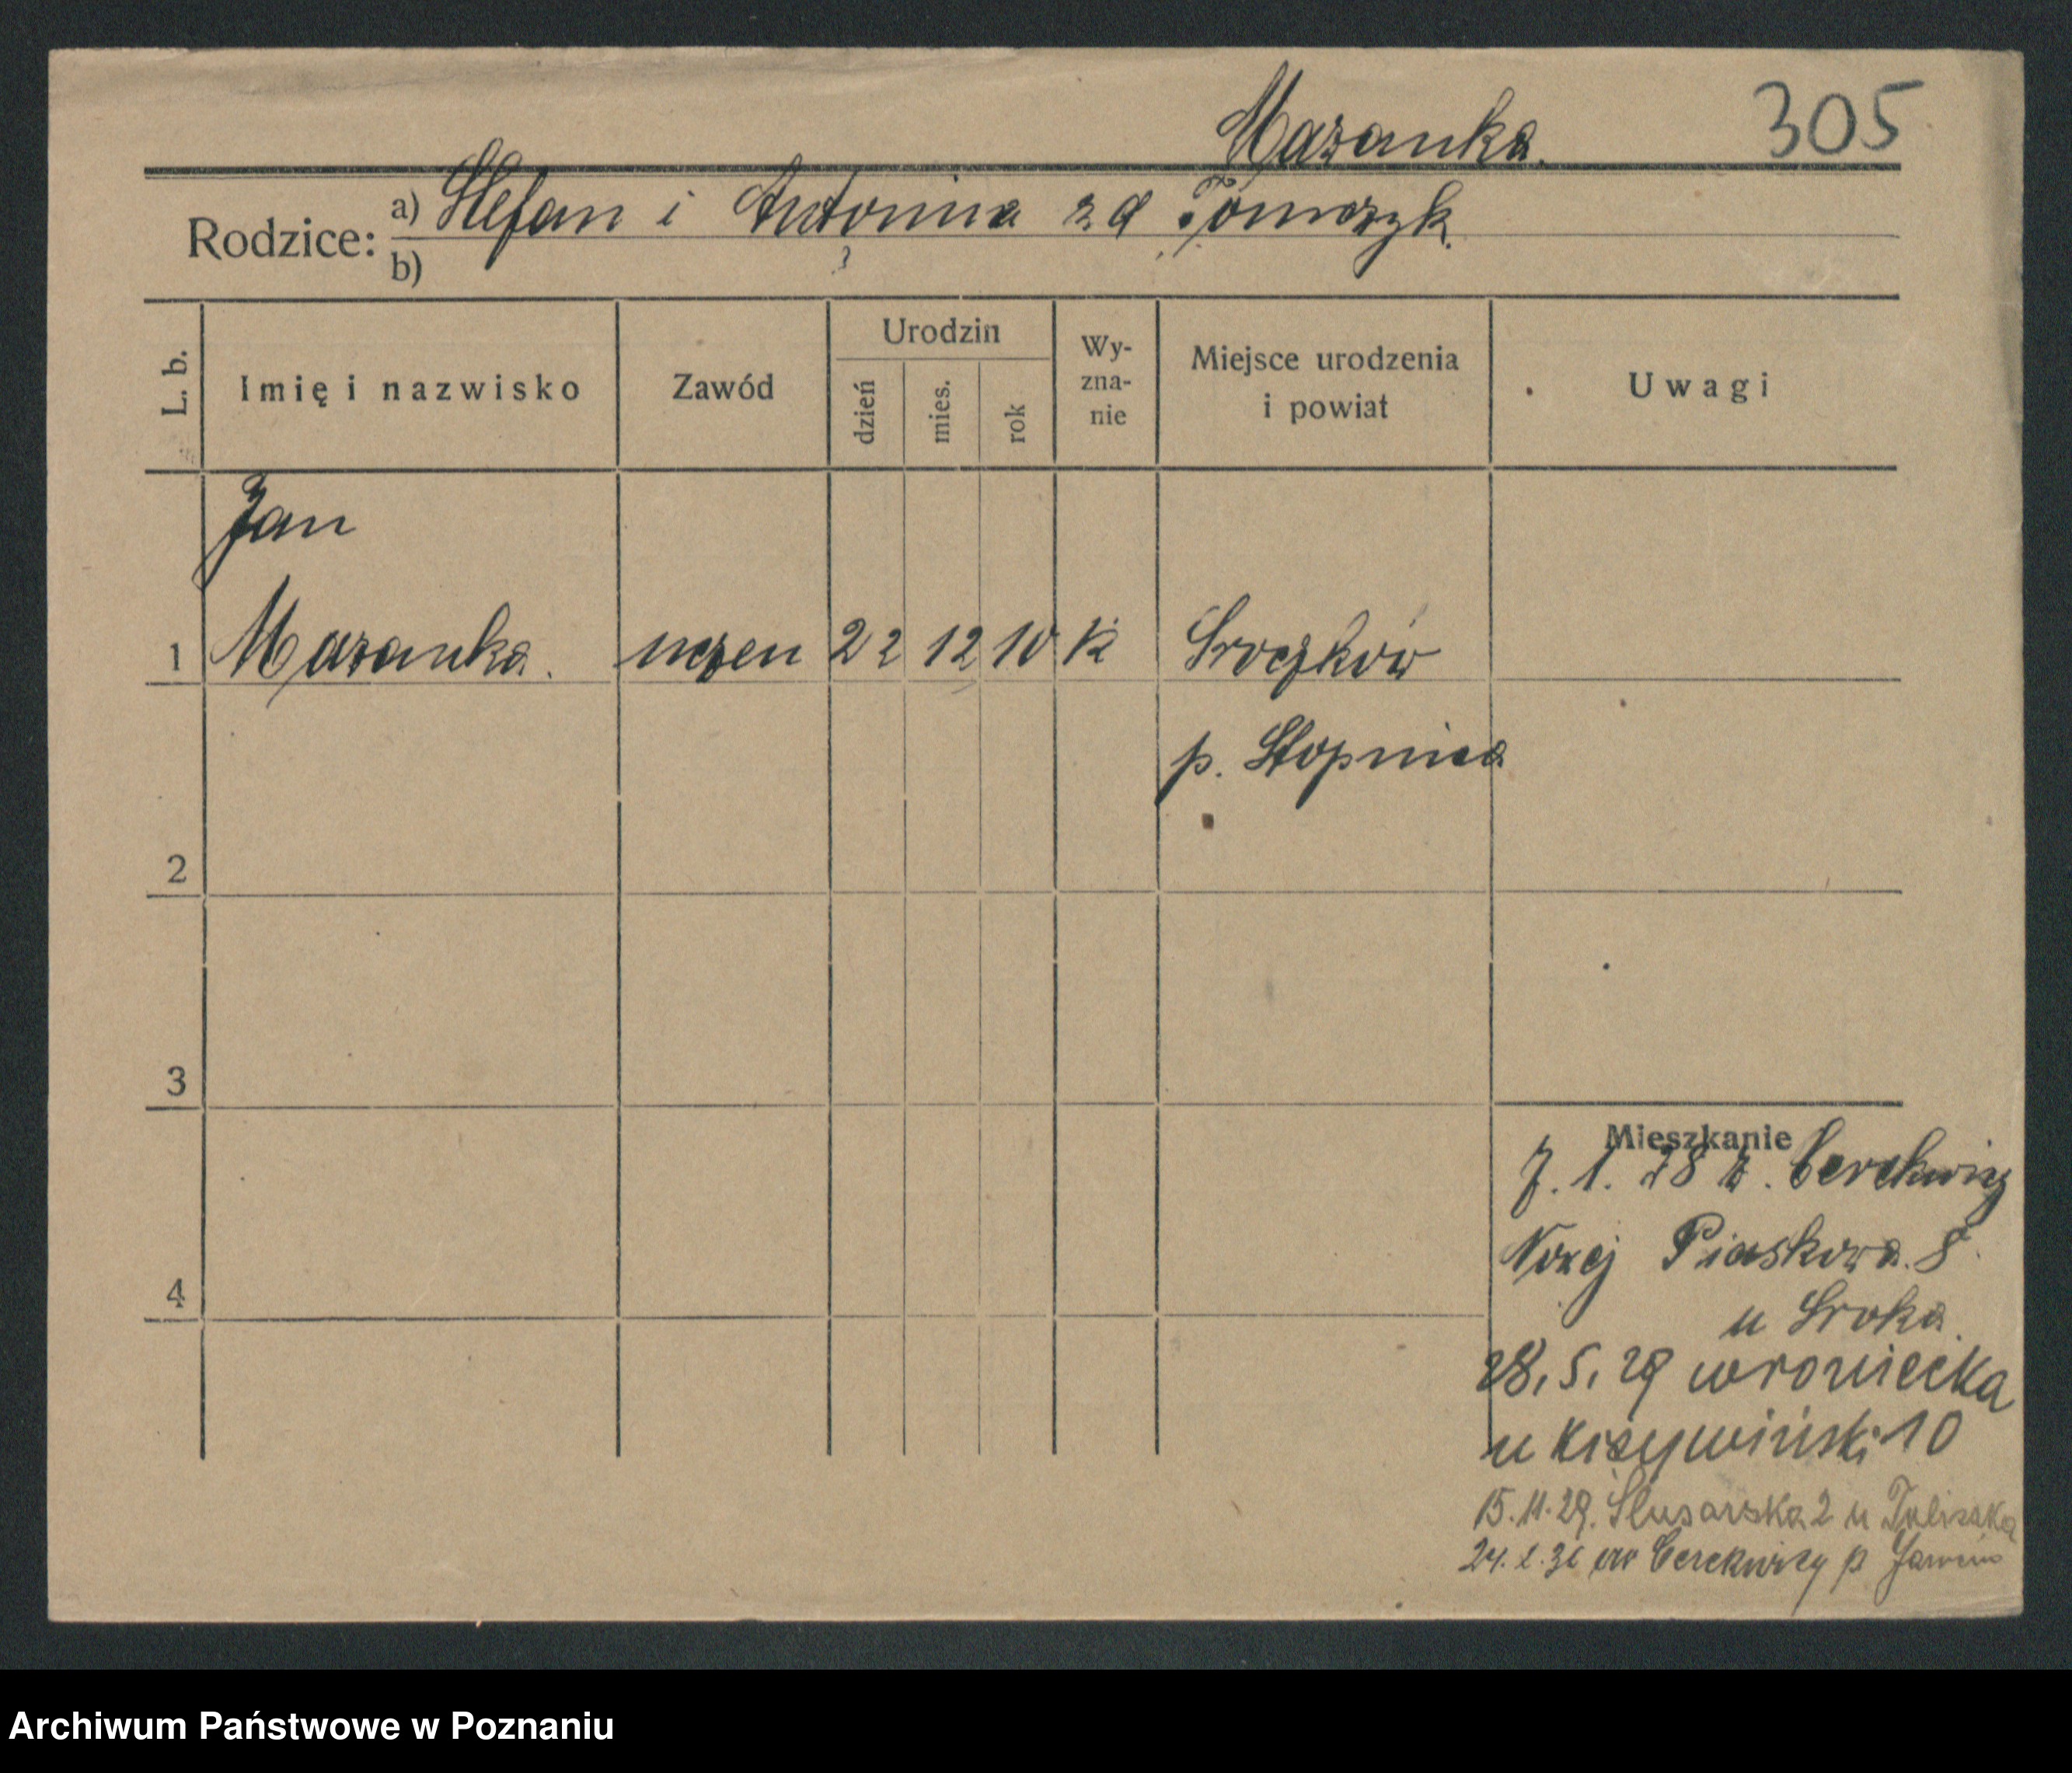 Mazanka.
305
Rodzice: a) Stefan i Antonina z d Tomczyk.
b)
L. b.
Imię i nazwisko
Zawód
Urodzin
dzień
mies.
rok
Wy-
zna-
nie
Miejsce urodzenia
i powiat
Uwagi
Jan
1 Mazanka. uczen 22 12 10 K Sroczków
p. Stopnica
2
3
4
Mieszkanie
7. 1. 28 z. Cerekwicy
Nowej Piaskowa. 8.
u Sroka.
28, 5, 29 wroniecka
u Krzywiński 10
15. 11. 29. Ślusarska 2 u Tuliszka
24. 2. 31 Cerekwicy p
Archiwum Państwowe w Poznaniu